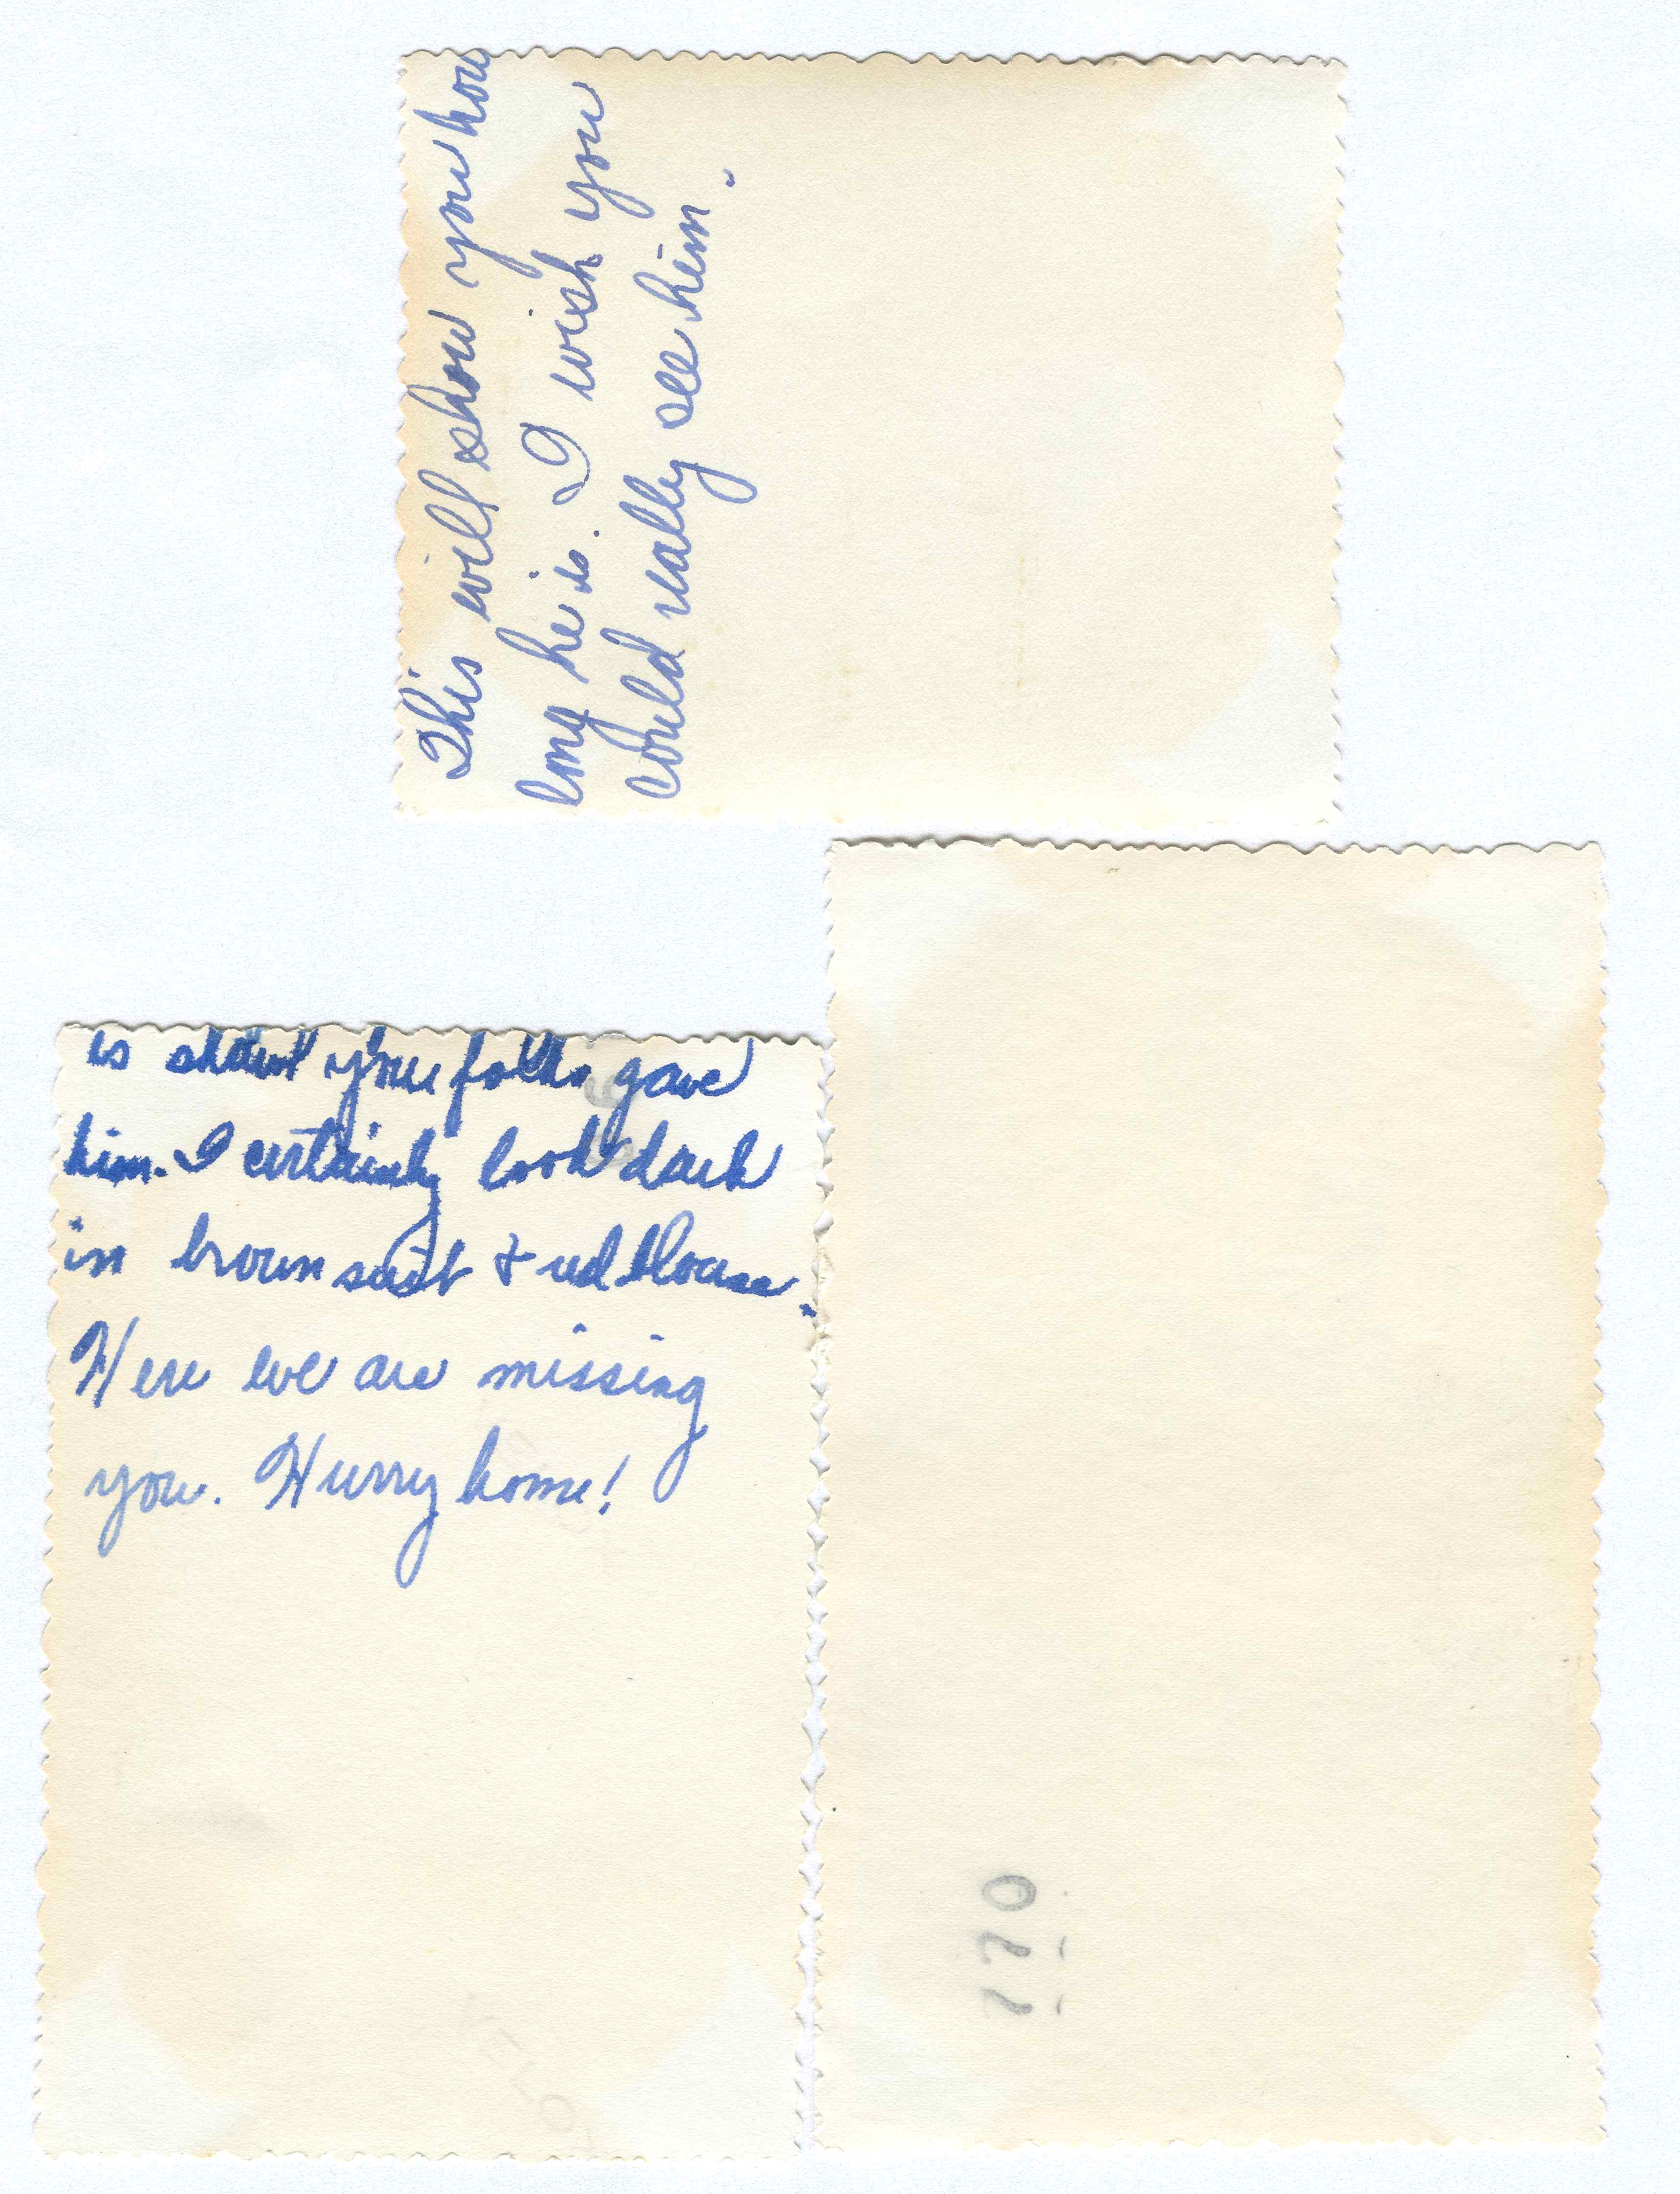 This will show you how
long he is. I wish you
could really see him.
is shawl you folks gave
him. I certainly look dark
in brown suit & red blouse.
Here we are missing
you. Hurry home!
770